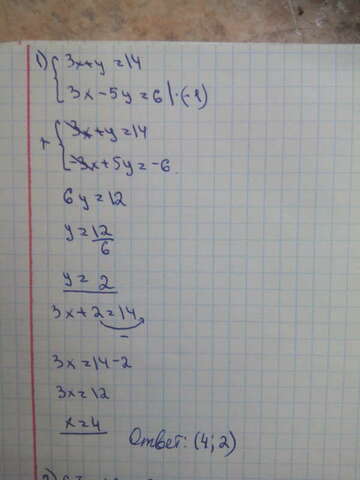 1) { 3x+y=14
3x-5y=6 | ·(-1)
+ { 3x+y=14
-3x+5y=-6.
6y=12
y=12/6
y=2
3x+2=14
-
3x=14-2
3x=12
x=4
Ответ: (4; 2)